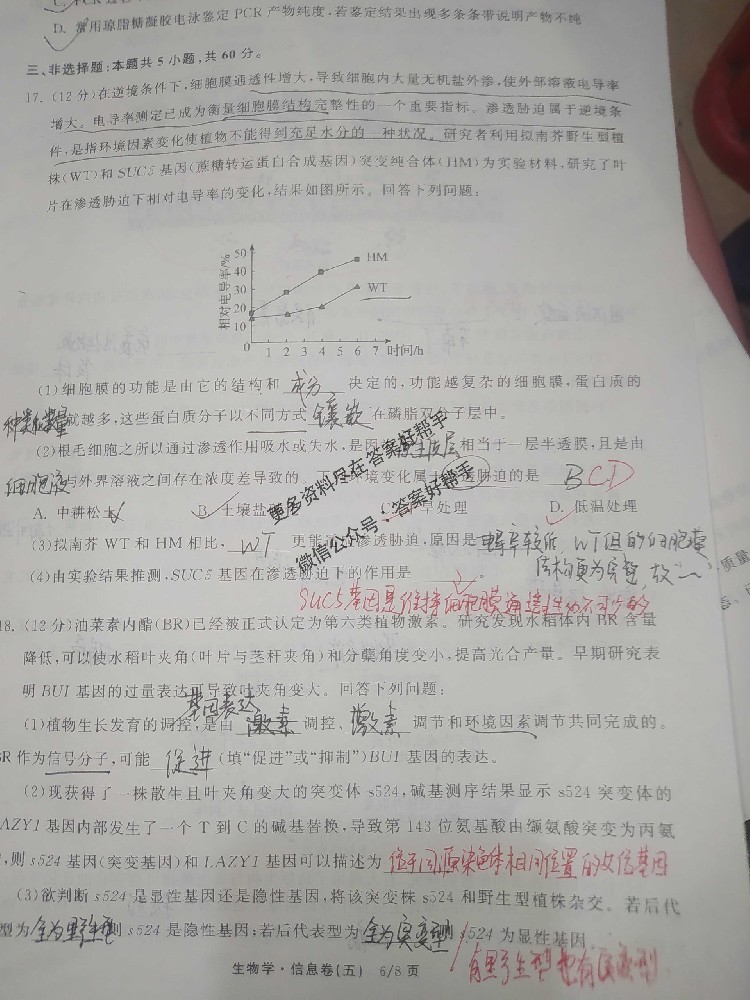 D. 常用琼脂糖凝胶电泳鉴定 PCR 产物纯度,若鉴定结果出现多条条带说明产物不纯
三、非选择题:本题共 5 小题,共 60 分。
17. (12 分)在逆境条件下,细胞膜通透性增大,导致细胞内大量无机盐外渗,使外部溶液电导率
增大。电导率测定已成为衡量细胞膜结构完整性的一个重要指标。渗透胁迫属于逆境条
件,是指环境因素变化使植物不能得到充足水分的一种状况。研究者利用拟南芥野生型植
株(WT)和 SUC5 基因(蔗糖转运蛋白合成基因)突变纯合体(HM)为实验材料,研究了叶
片在渗透胁迫下相对电导率的变化,结果如图所示。回答下列问题:
相对电导率/%
50
40
30
20
10
0 1 2 3 4 5 6 7 时间/h
HM
WT
(1)细胞膜的功能是由它的结构和 成分 决定的,功能越复杂的细胞膜,蛋白质的
种类和数量 就越多,这些蛋白质分子以不同方式 镶嵌 在磷脂双分子层中。
(2)根毛细胞之所以通过渗透作用吸水或失水,是因 相当于一层半透膜,且是由
细胞液 与外界溶液之间存在浓度差导致的。下 环境变化属于 胁迫的是 BCD
A. 中耕松土 B. 土壤盐 处理 D. 低温处理
(3)拟南芥 WT 和 HM 相比, WT 更能 渗透胁迫,原因是 电导率较低, WT 的细胞膜
结构更为完整,故
(4)由实验结果推测,SUC5 基因在渗透胁迫下的作用是
SUC5基因是维持细胞膜通透性必不可少的
更多资料尽在答案好帮手
微信公众号:答案好帮手
18. (12 分)油菜素内酯(BR)已经被正式认定为第六类植物激素。研究发现水稻体内 BR 含量
降低,可以使水稻叶夹角(叶片与茎秆夹角)和分蘖角度变小,提高光合产量。早期研究表
明 BU1 基因的过量表达可导致叶夹角变大。回答下列问题:
基因表达
(1)植物生长发育的调控,是由 激素 调控、 激素 调节和环境因素调节共同完成的。
BR 作为信号分子,可能 促进 (填“促进”或“抑制”)BU1 基因的表达。
(2)现获得了一株散生且叶夹角变大的突变体 s524,碱基测序结果显示 s524 突变体的
LAZY1 基因内部发生了一个 T 到 C 的碱基替换,导致第 143 位氨基酸由缬氨酸突变为丙氨
,则 s524 基因(突变基因)和 LAZY1 基因可以描述为 位于同源染色体相同位置的等位基因
(3)欲判断 s524 是显性基因还是隐性基因,将该突变株 s524 和野生型植株杂交。若后代
型为 全为野生型 则 s524 是隐性基因;若后代表型为 全为突变型 则 s524 为显性基因
有野生型也有突变型
生物学·信息卷(五) 6/8 页
质量